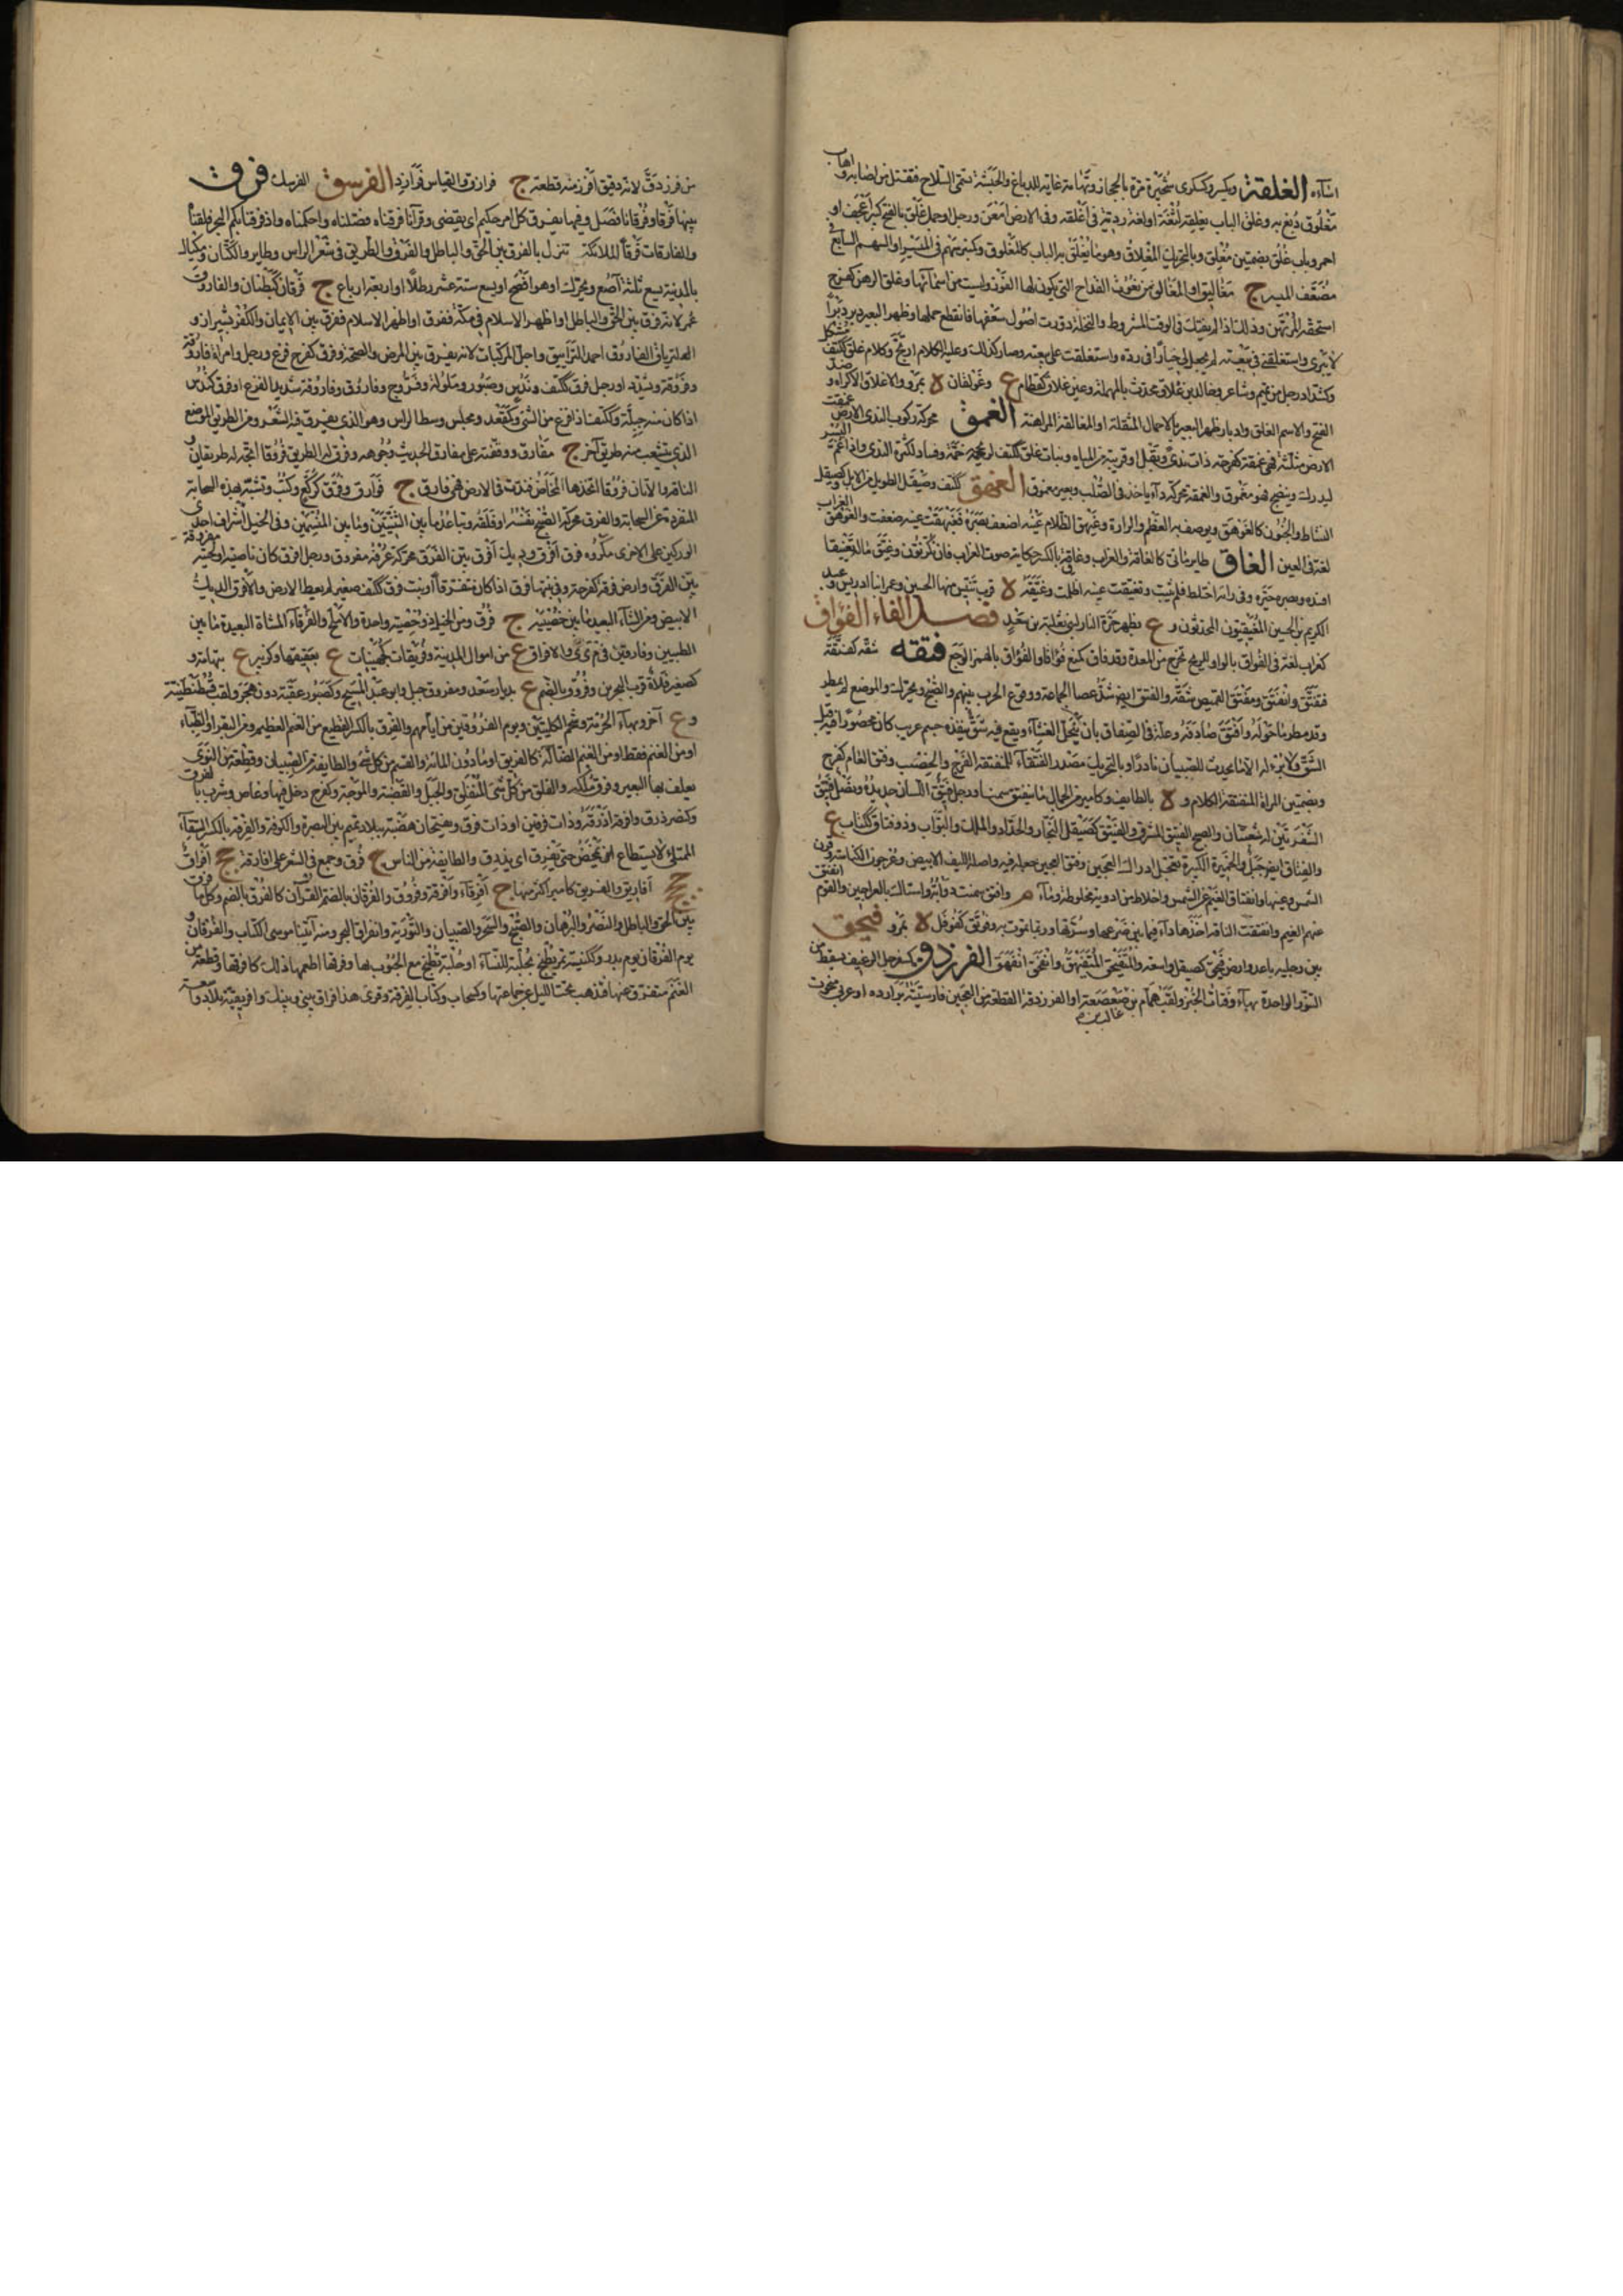 اشآءه الغلقة ويكسر وكسكرى شجيرة مرة بالحجاز وتهامة غاية للدباغ والحبشة تسمى السلاح فتقتل من اصابه واهاب
مغلوق دبغ به وغلق الباب يغلقه لثغة او لغة رديئة فى اغلقه وفى الارض امعن ورجل وجمل غلق بالفتح كبير اعجف او
احمر وباب غلق بضمتين مغلق وبالتحريك المغلاق وهو ما يغلق به الباب كالمغلوق وكمنبر سهم فى الميسر او السهم السابع فى
مضعف الميسر ج مغاليق او المغالق من نعوت القداح التى يكون لها الفوز وليست من اسمآئها وغلق الرهن كفرح
استحقه المرتهن وذلك اذا لم يفتك فى الوقت المشروط والنخلة دودت اصول سعفها فانقطع حملها وظهر البعير دبر دبرا
لا يبرى واستغلقنى فى بيعته لم يجعل لى خيارا فى رده واستغلقت على بيعته وصار كذلك وعليه الكلام ارتج وكلام غلق ككتف مشكل
وكشداد رجل من تميم وشاعر وخالد بن غلاق محدث بالمهملة وعين غلاق كقطام ع وغولقان لا بمرو والاغلاق الاكراه وضد
الفتح والاسم الغلق وادبار ظهر البعير بالاحمال المثقلة او المغالقة المراهنة الغمق محركة ركوب الندى الارض غمقت
الارض مثلثة فهى غمقة كفرحة ذات ندى وثقل او قريبة من المياه ونبات غمق ككتف لريحه خمة وفساد لكثرة الندى واذا غم البسر
ليدرك وينضج فهو مغموق والغمقة محركة دآء ياخذ فى الصلب وبعير مغموق الغهق ككتف وصيقل الطويل من الابل وكصيقل
النشاط والجنون كالغوهق ويوصف به العظم والوارة وغيهق الظلام عينه اضعف بصره فغيهقت عينه ضعفت والغوهق الغراب
لغة فى العين الغاق طاير مائى كالغاقة والغراب وغاق بالكسر حكاية صوت الغراب فان نكر نون وغيق ماله تغييقا
افسده وبصره حيره وفى رايه اختلط فلم يثبت وتغيقت عينه اظلمت وغيقة لا قرب تنيس منها الحسين وعمر ابنا ادريس وعبد
الكريم بن الحسين المغيقيون المحدثون وع بظهر حرة النار لبنى ثعلبة بن سعد فصل الفاء الفؤاق
كغراب لغة فى الفواق بالواو للريح تخرج من المعدة وقد فاق كمنع فؤاقا والفؤاق بالهمز الوجع فتقه شقه كفتقه
فتفتق وانفتق ومفتق القميص مشقه والفتق ايض شق عصا الجماعة ووقوع الحرب بينهم والصبح ويحرك والموضع لم يمطر
وقد مطر ما حوله وافتق صادفه وعلة فى الصفاق بان ينحل الغشآء ويقع فيه شق ينفذه جسم غريب كان محصورا فيه قبل
الشق ولا برء له الا ما يحدث للصبيان نادرا وبالتحريك مصدر الفتقآء للمنفتقة الفرج والخصب وفتق العام كفرح
وبضمتين المراة المتفتقة بالكلام ولا بالطايف وكامير من الجمال ما ينفتق سمنا ورجل فتيق اللسان حديده ونصل فتيق
الشفرتين له شعبتان والصبح الفتيق المشرق والفيتق كصيقل النجار والحداد والملك والبواب وذو فتاق ككتاب ع
والفتاق ايض جبل والخميرة الكبيرة يعجل ادراك العجين وفتق العجين جعله فيه واصل الليف الابيض وعرجون الكباسة وقرن
الشمس وعينها وانفتاق الغيم عن الشمس واخلاط من ادوية مخلوطة ومآء م وافتق سمنت دوابه واستاك بالعراجين والقوم انفتق
عنهم الغيم وانفتقت الناقة اخذها دآء فيما بين ضرعها وسرتها وربما تموت به وفوتق كفوفل لا بمرو فيحق
بين رجليه باعد وارض فيحق كصيقل واسعة والمتفيحق المتفيهق وانفحق انفهق الفرزدق كسفرجل الرغيف يسقط من
التنور الواحدة بهآء وفتات الخبز ولقب همام بن غالب بن صعصعة او الفرزدقة القطعة من العجين فارسيته برازده او عربى منحوت
من فرز دق لانه دقيق افرز منه قطعة ج فرازق والقياس فرازد الفرسق الفرسك فرق
بينهما فرقا وفرقانا فصل وفيها يفرق كل امر حكيم اى يقضى وقرآنا فرقناه فصلناه واحكمناه واذ فرقنا بكم البحر فلقناه
والفارقات فرقا الملائكة تنزل بالفرق بين الحق والباطل والفرق الطريق فى شعر الراس وطاير والكتان ومكيال
بالمدينة يسع ثلثة آصع ويحرك او هو افصح او يسع ستة عشر رطلا او اربعة ارباع ج فرقان كبطنان والفاروق
عمر لانه فرق بين الحق والباطل او اظهر الاسلام فى مكة ففرق او اظهر الاسلام ففرق بين الايمان والكفر بشيراز و
الترياق الفاروق احمد الترايق واجل المركبات لانه يفرق بين المرض والصحة وفرق كفرح فزع ورجل وامراة فاروقة
وفروقة ويشدد او رجل فرق ككتف وندس وصبور وملولة وفروج وفاروق وفاروقة شديد الفزع او فرق كندس
اذا كان منه جبلة وككتف اذا فزع من الشئ وكمقعد ومجلس وسط الراس وهو الذى يفرق فيه الشعر ومن الطريق الموضع
الذى يتشعب منه طريق آخر ج مفارق ووقفته على مفارق الحديث وجوهه وفرق له الطريق فروقا اتجه له طريقان و
الناقة والاتان فروقا اخذها المخاض فندت فى الارض فهى فارق ج فوارق وفرق كركع وكتب وتشبه بهذه السحابة
المنفردة عن السحابة والفرق محركة الصبح نفسه او فلقه وتباعد ما بين الثنيتين وما بين المنسمين وفى الخيل اشراف احدى
الوركين على الاخرى مكروه فرق افرق وديك افرق بين الفرق محركة عرفه مفروق ورجل افرق كان ناصيته او لحيته مفروقة
بين الفرق وارض فرقة كفرحة وفى نبتها فرق اذا كان متفرقا او نبت فرق ككتف صغير لم يغط الارض والافرق الديك
الابيض ومن الشآء البعيد ما بين خصييه ج فرق ومن الخيل ذو خصية واحدة والافلج والفرقآء الشاة البعيدة ما بين
الطبيين وفارقين فى م ى ى والافراق ع من اموال المدينة وفريقات كجهينات ع بعقيقها وكزبير ع بتهامة و
كصغير فلاة قرب البحرين وفروق بالضم ع بديار سعد ومفروق جبل وابو عبد المسيح وكصبور عقبة دون هجر ولقب قسطنطينية
وع آخر وبهآء الحرمة وشحم الكليتين ويوم الفروقين من ايامهم والفرق بالكسر القطيع من الغنم العظيم ومن البقر او الظبآء
او من الغنم فقط او من الغنم الضالة كالفريق او ما دون المائة والقسم من كل شئ والطايفة من الصبيان وقطعة من النوى
يعلف بها البعير وفرق ملكه والفلق من كل شئ المنفلق والجبل والهضبة والموجة وكفرح دخل فيها وغاص وشرب بالفرق
وكنصر ذرق وافرقه اذرقه وذات فرقين او ذات فرق ويفتحان هضبة ببلاد تميم بين البصرة والكوفة والفرقة بالكسر السقآء
الممتلئ لا يستطاع ان يمخض حتى يفرق اى يذرق والطايفة من الناس ج فرق وجمع فى الشعر على افارق جج افراق
ججج افاريق والفريق كامير اكثر منها ج افرقآء وافرقة وفروق والفرقان بالضم القرآن كالفرق بالضم وكل ما فرق به
بين الحق والباطل والنصر والبرهان والصبح والسحر والصبيان والتورية وانفراق البحر ومنه آتينا موسى الكتاب والفرقان و
يوم الفرقان يوم بدر وكسفينة تمر يطبخ بحلبة للنفسآء او حلبة تطبخ مع الحبوب لها وفرقها اطعمها ذلك كافرقها وقطعة من
الغنم تتفرق عنها فتذهب تحت الليل عن جماعتها وكسحاب وكتاب الفرقة وقرئ هذا فراق بينى وبينك وافريقية بلاد واسعة